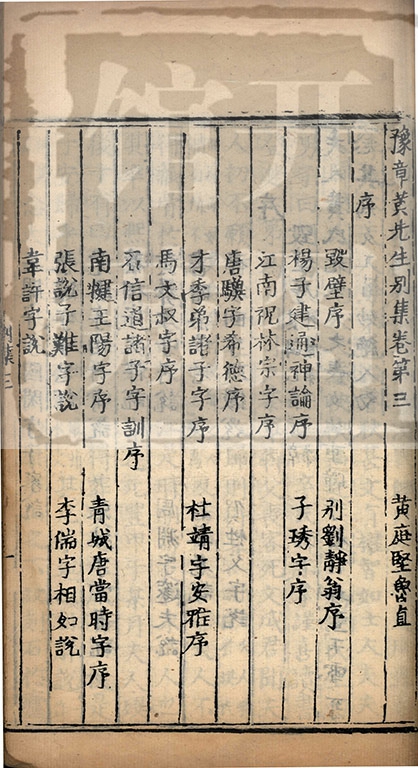 豫章黃先生别集卷第三　黃庭堅魯直
序
毀璧序　别劉靜翁序
楊子建通神論序　子琇字序
江南祝林宗字序
唐驥字希德序
才季弟諸子字序　杜靖字安雅序
馬文叔字序
石信道諸子字訓序
南糶王陽字序　青城唐當時字序
張說子難字說　李倕字相如說
韋許字說
别集三
一